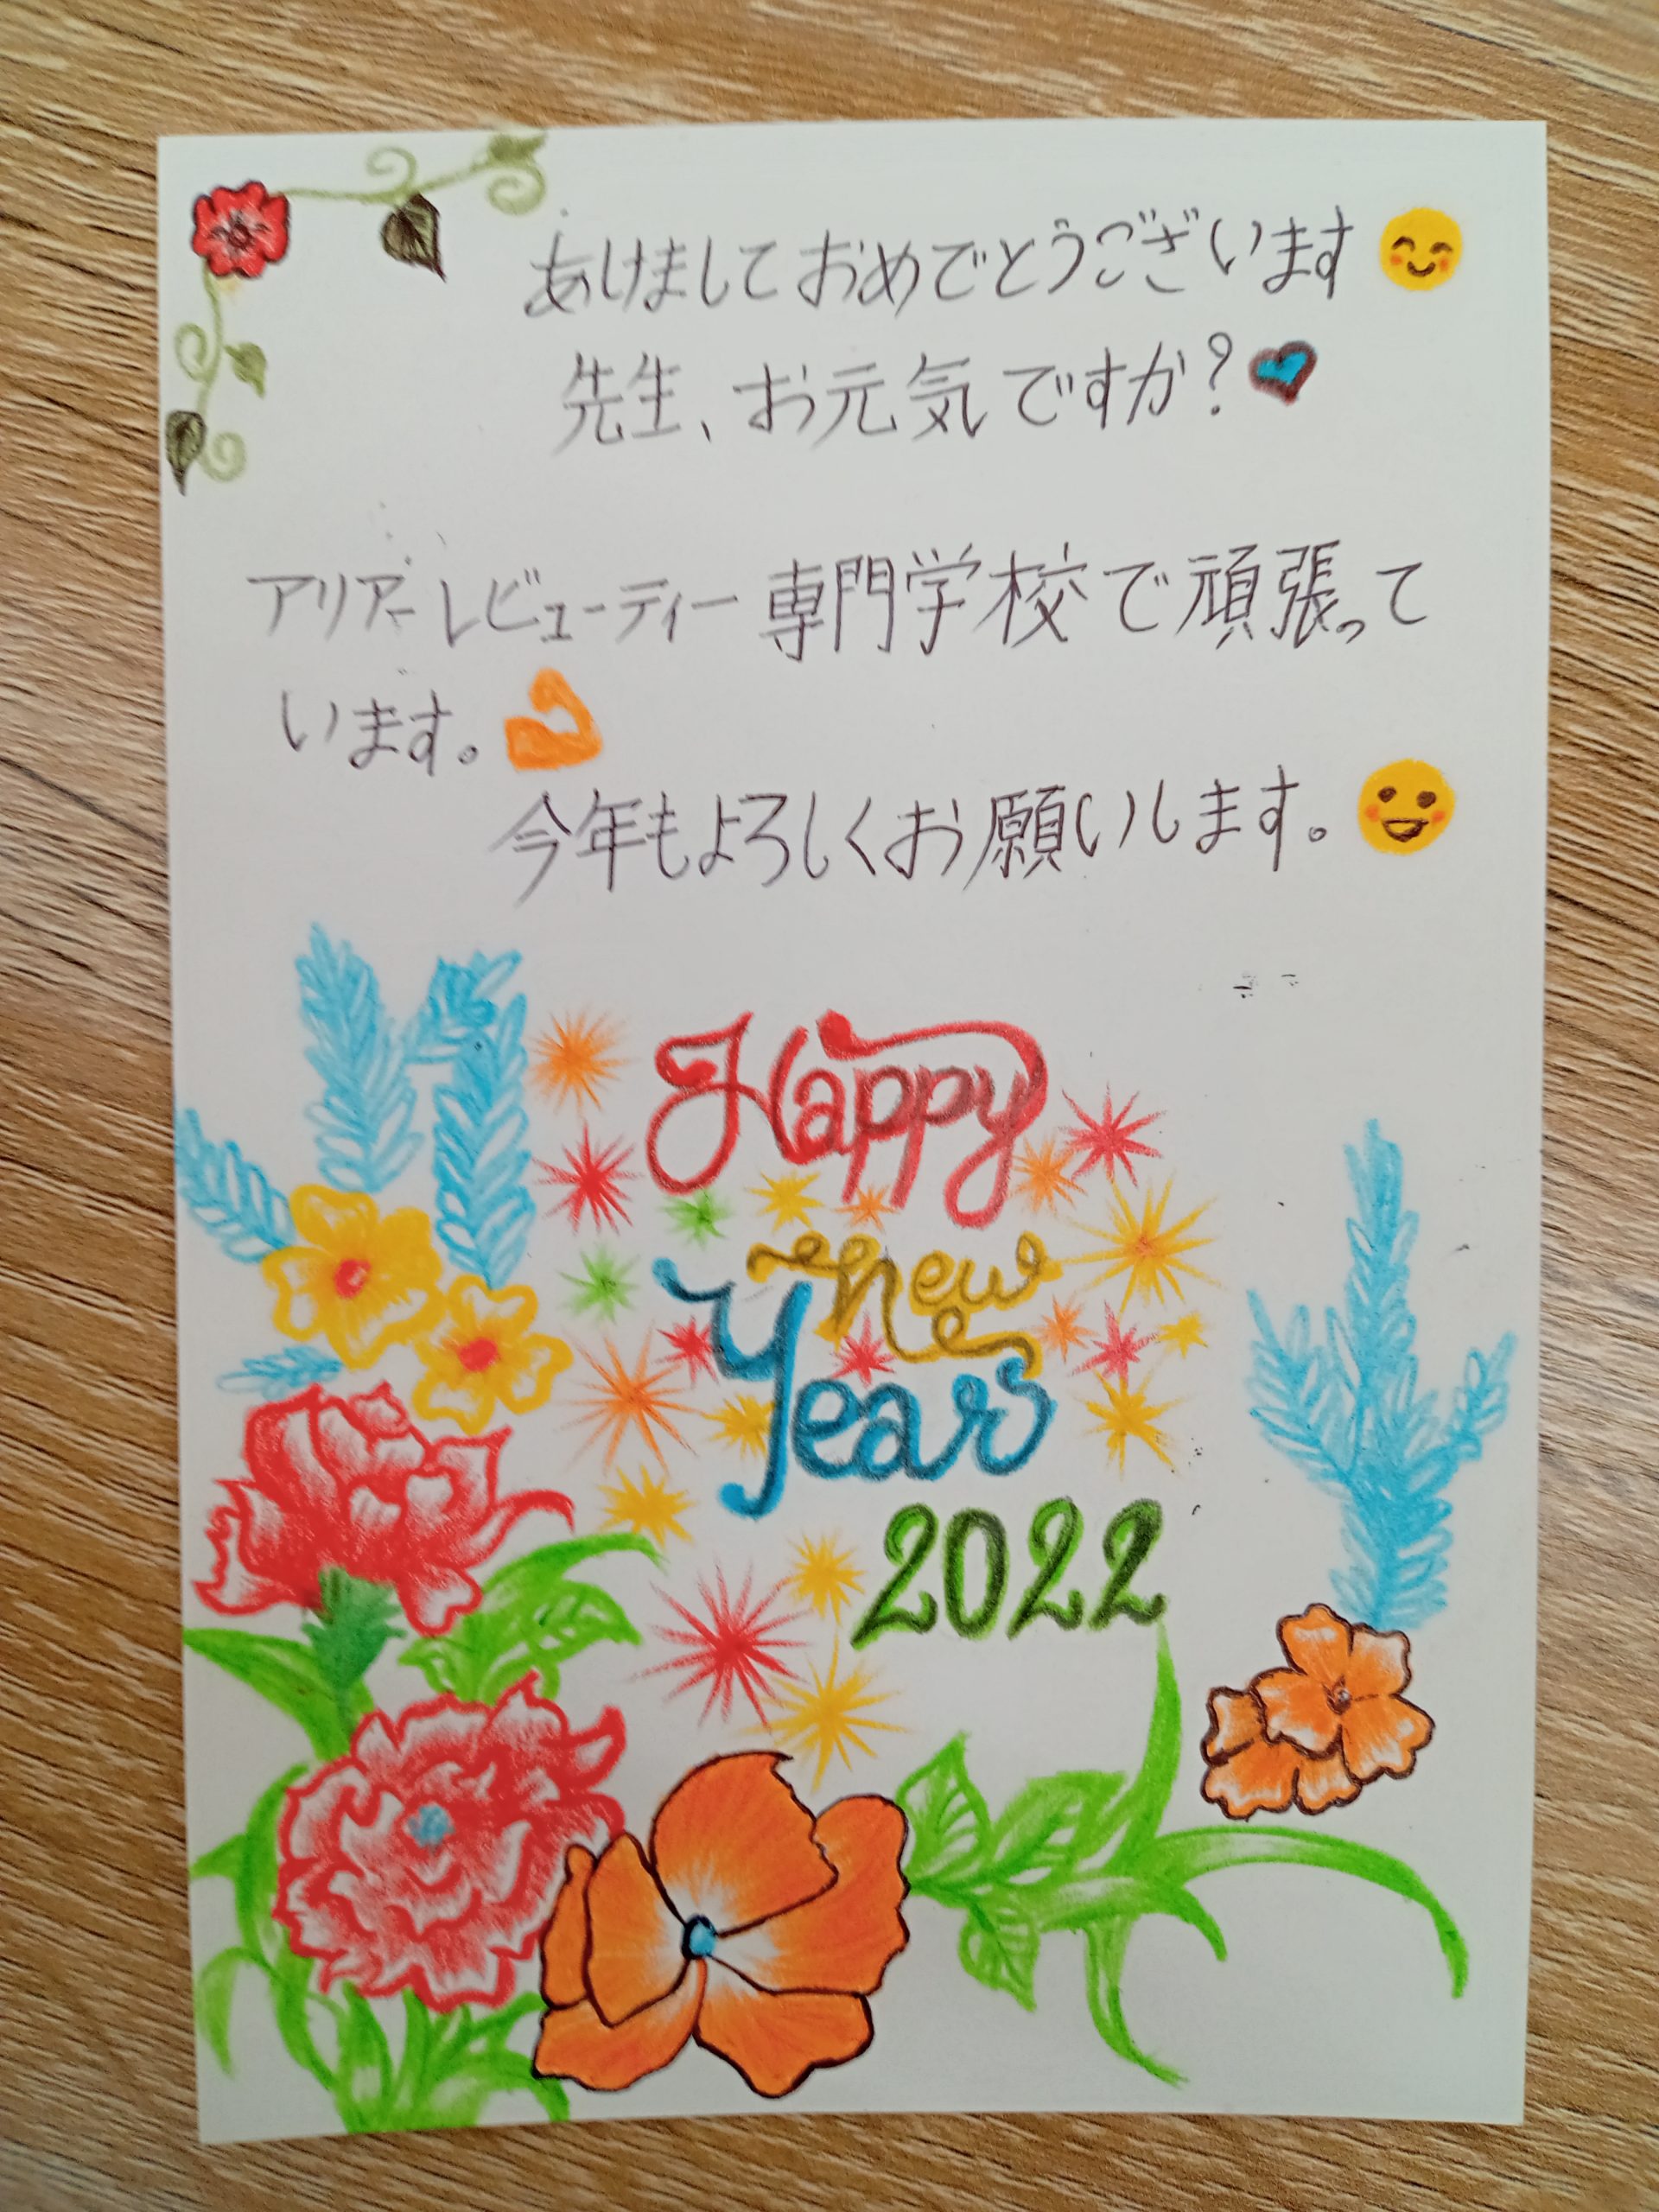 あけましておめでとうございます
先生、お元気ですか?
アリアーレビューティー専門学校で頑張って
います。
今年もよろしくお願いします。
Happy
new
Year
2022